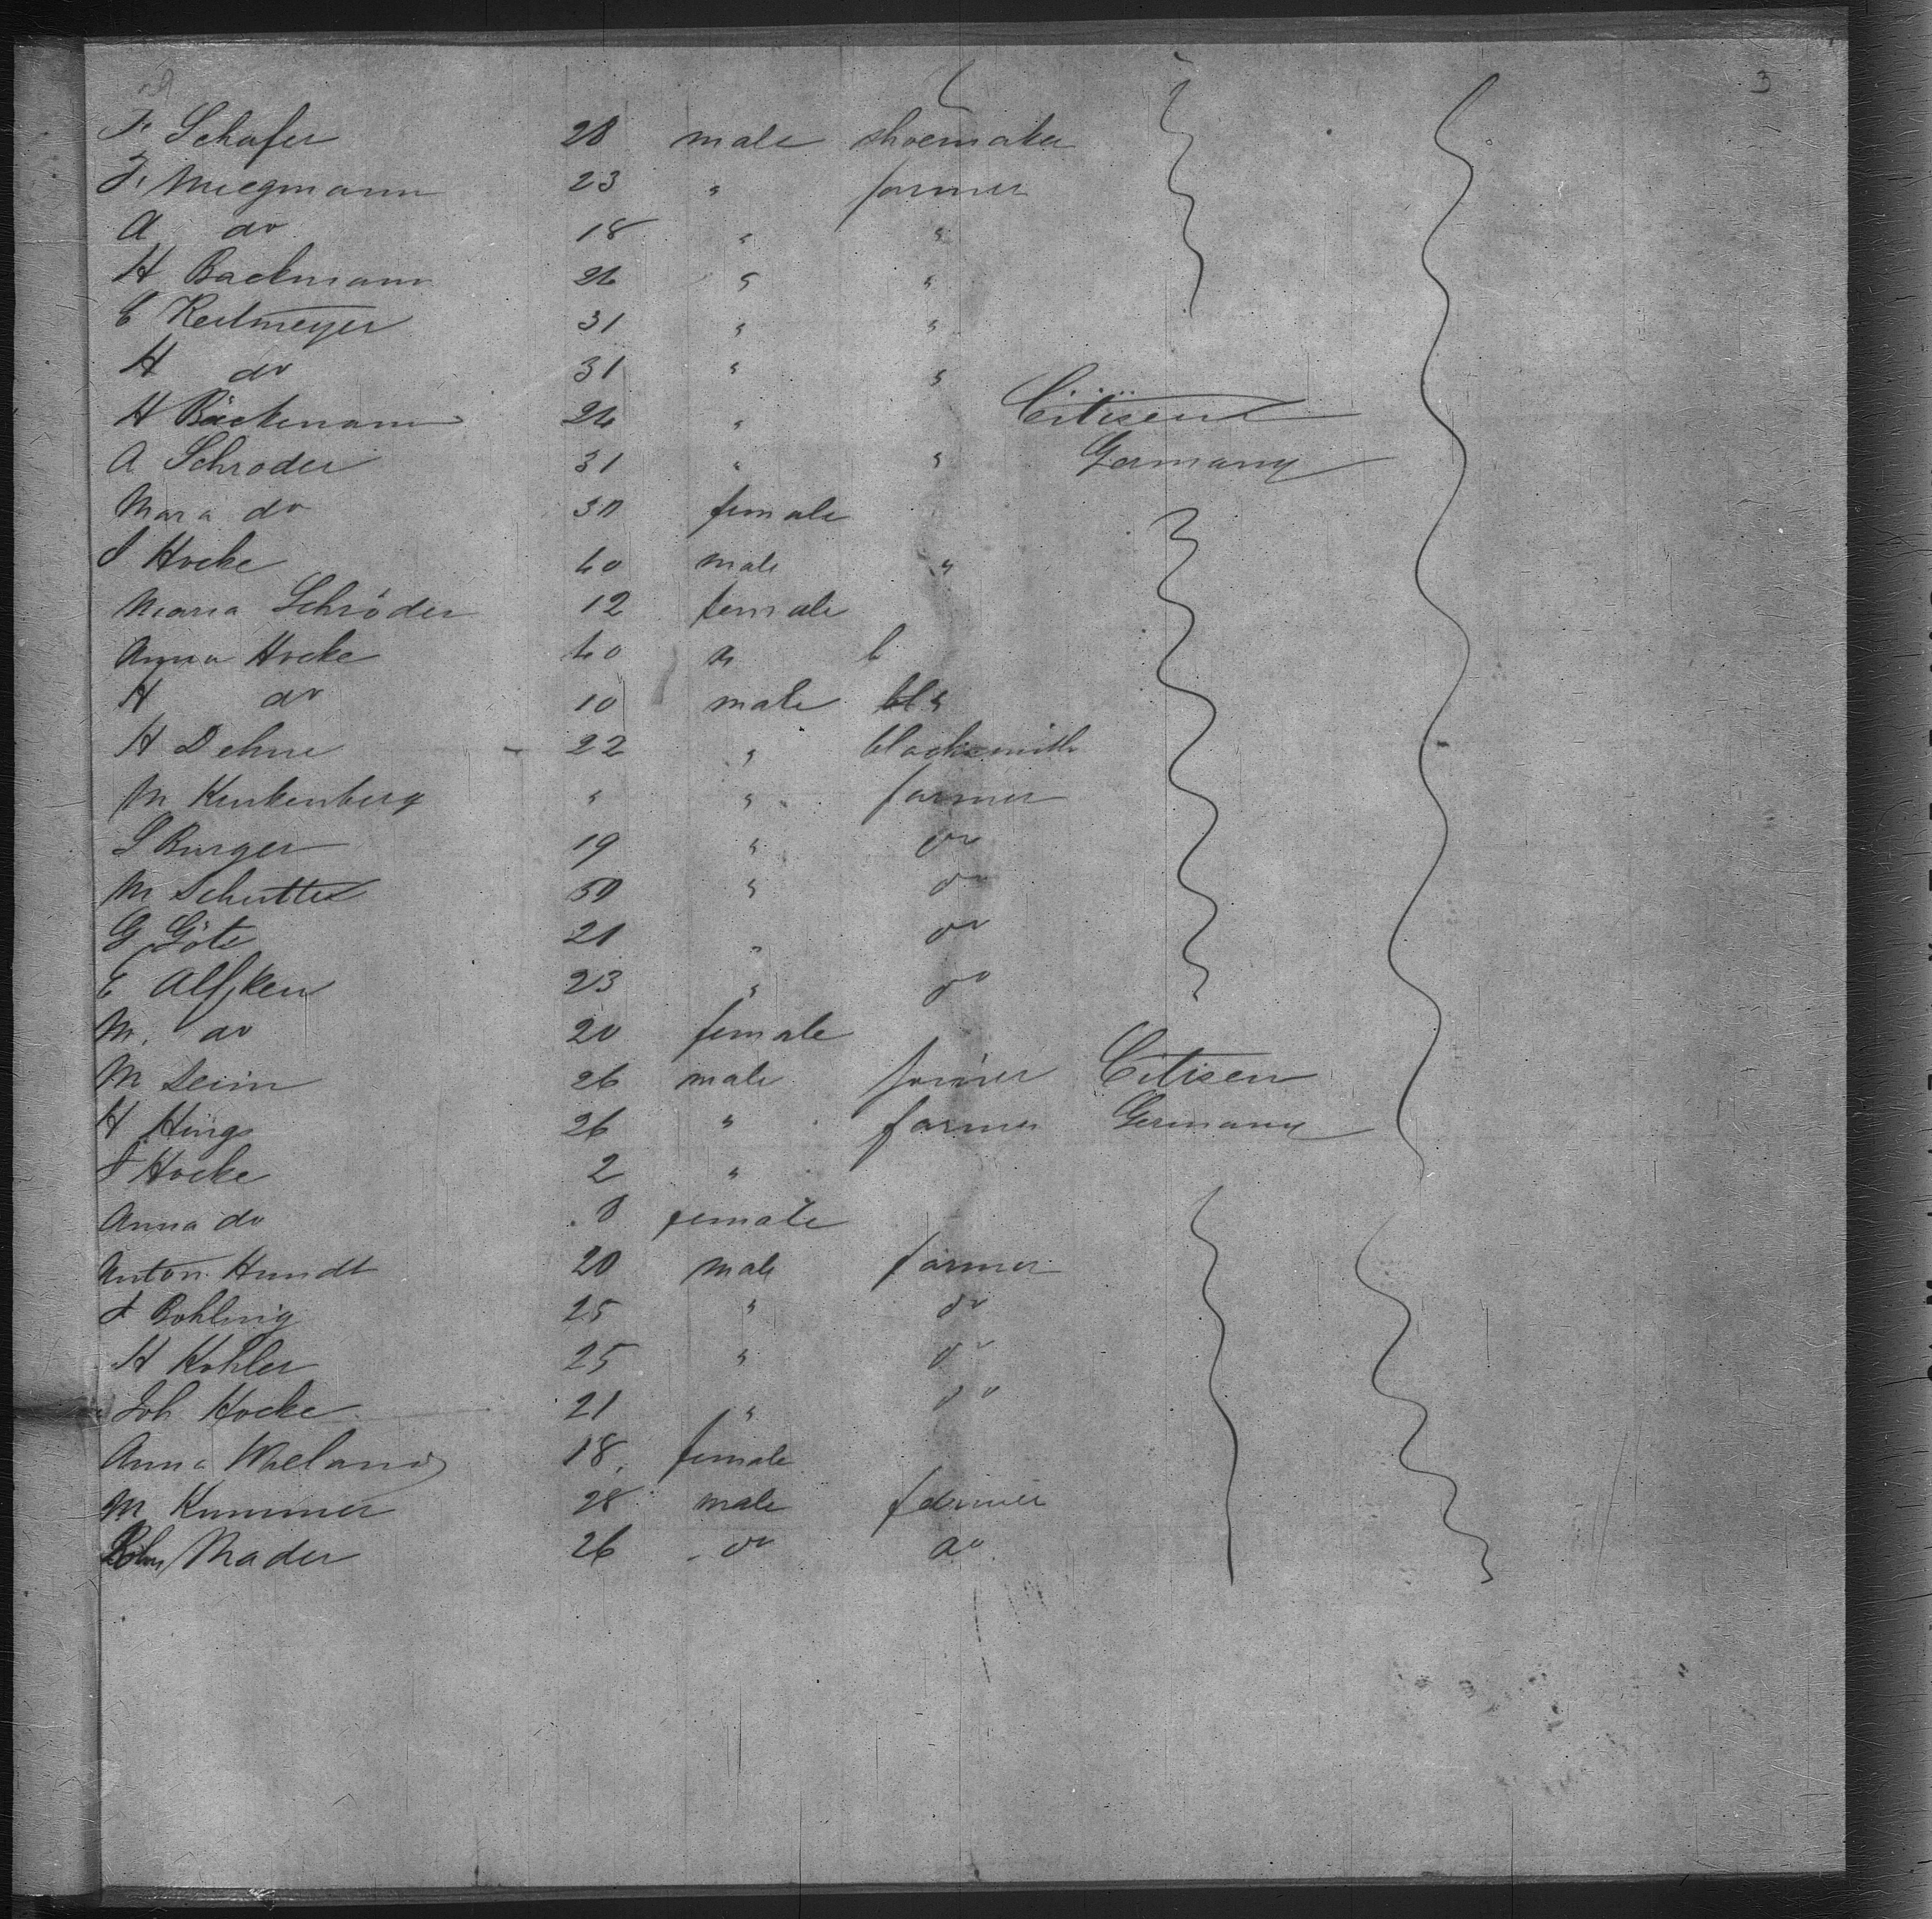 3
F. Schafer 28 male shoemaker
F. Miegmann 23 " farmer
A do 18 " "
H Backmann 26 " "
C Reitmeyer 31 " "
H do 31 " "
H Bäckmann 24 " Citisen
A Schroder 31 " " Germany
Mara do 30 female
J Hocke 40 male "
Maria Schröder 12 female
Anna Hocke 40 " b
H do 10 male bl "
H Dehne 22 " blacksmith
M Kinkenberg " " farmer
S Burger 19 " do
M Schutte 50 " do
G Göte 21 " do
E Alfken 23 " do
M. do 20 female
M Deim 26 male farmer Citisen
H Hings 26 " farmer Germany
J Hocke 2 " 
Anna do 8 female
Anton Hundt 20 male farmer
J Bohling 25 " do
H Kohler 25 " do
Joh Hocke 21 " do
Anna Wieland 18 female
M Kummer 28 male farmer
Mader 26 do do